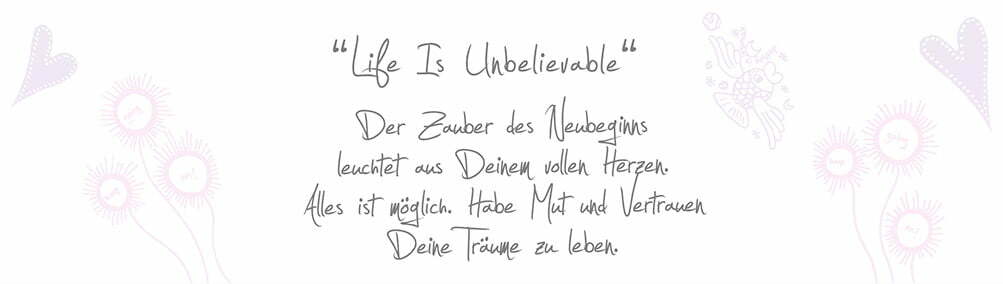 “Life Is Unbelievable“
Der Zauber des Neubeginns
leuchtet aus Deinem vollen Herzen.
Alles ist möglich. Habe Mut und Vertrauen
Deine Träume zu leben.